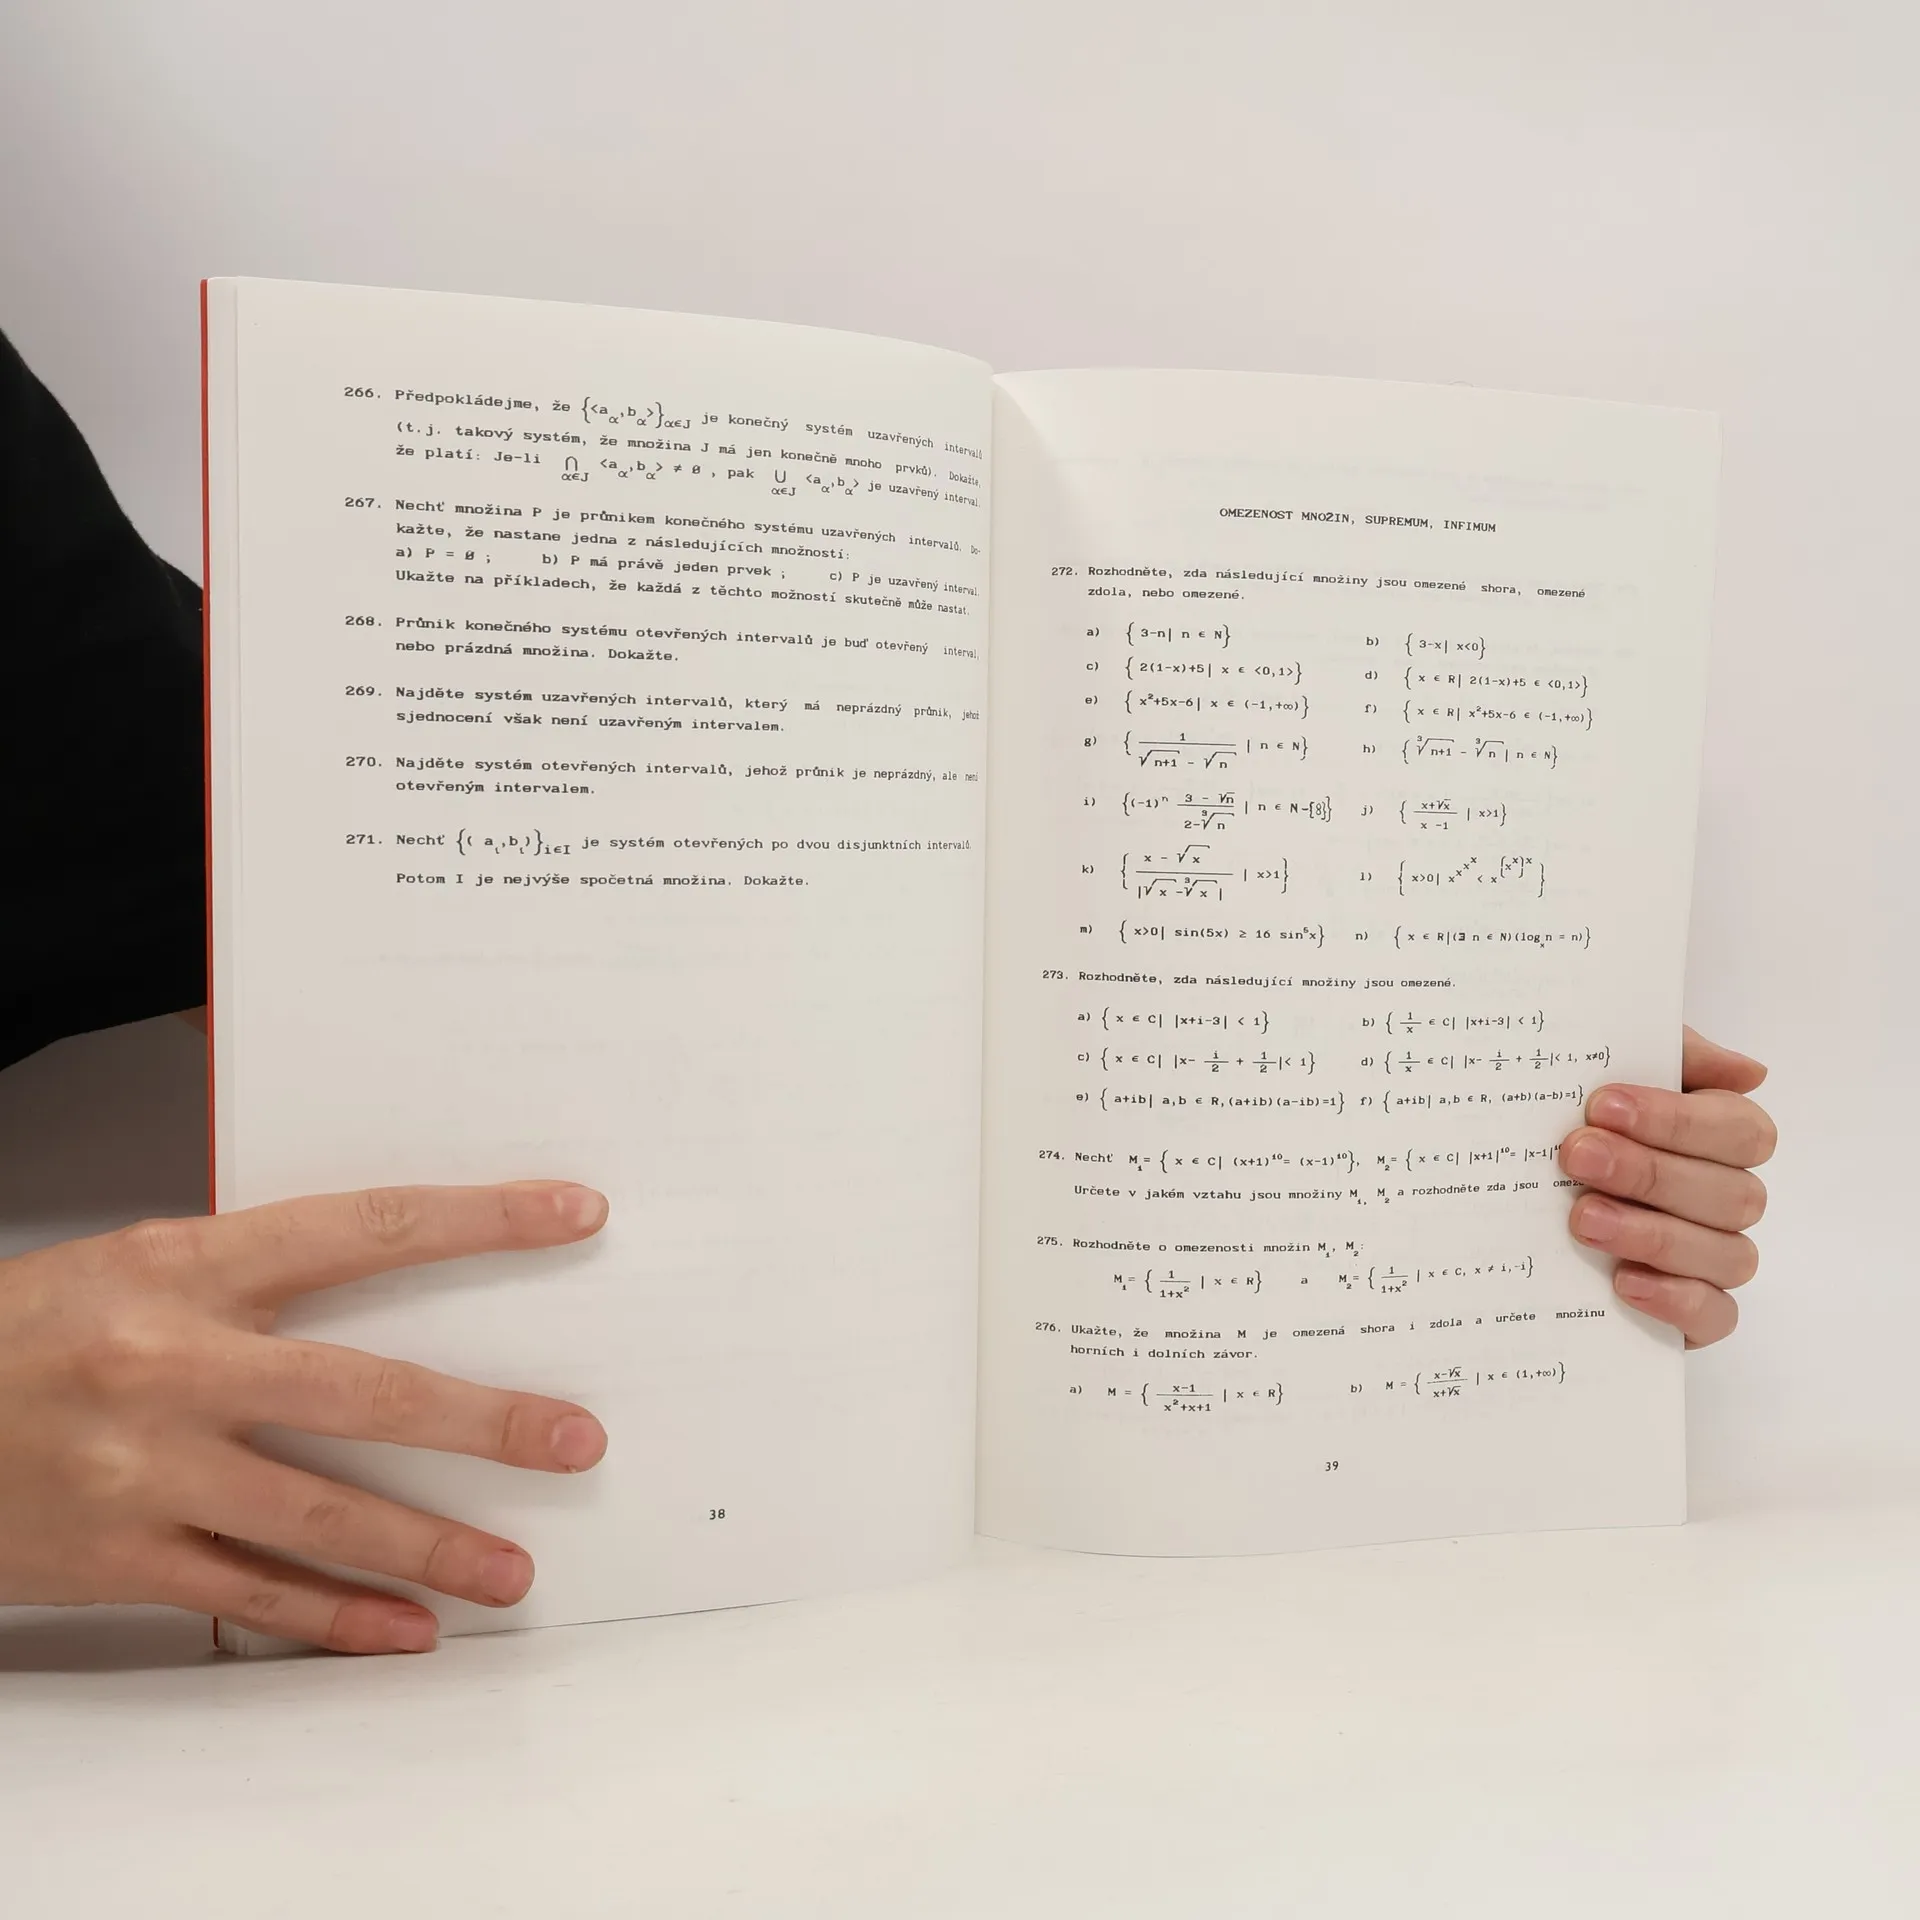 266. Předpokládejme, že {<a_α,b_α>}_α∈J je konečný systém uzavřených intervalů
(t.j. takový systém, že množina J má jen konečně mnoho prvků). Dokažte,
že platí: Je-li ⋂_α∈J <a_α,b_α> ≠ ∅ , pak ⋃_α∈J <a_α,b_α> je uzavřený interval.
267. Nechť množina P je průnikem konečného systému uzavřených intervalů. Do-
kažte, že nastane jedna z následujících množností:
a) P = ∅ ; b) P má právě jeden prvek ; c) P je uzavřený interval.
Ukažte na příkladech, že každá z těchto možností skutečně může nastat.
268. Průnik konečného systému otevřených intervalů je buď otevřený interval,
nebo prázdná množina. Dokažte.
269. Najděte systém uzavřených intervalů, který má neprázdný průnik, jehož
sjednocení však není uzavřeným intervalem.
270. Najděte systém otevřených intervalů, jehož průnik je neprázdný, ale není
otevřeným intervalem.
271. Nechť {( a_ι,b_ι)}_i∈I je systém otevřených po dvou disjunktních intervalů.
Potom I je nejvýše spočetná množina. Dokažte.
38
OMEZENOST MNOŽIN, SUPREMUM, INFIMUM
272. Rozhodněte, zda následující množiny jsou omezené shora, omezené
zdola, nebo omezené.
a) { 3-n| n ∈ N} b) { 3-x| x<0}
c) { 2(1-x)+5| x ∈ <0,1>} d) { x ∈ R| 2(1-x)+5 ∈ <0,1>}
e) { x²+5x-6| x ∈ (-1,+∞)} f) { x ∈ R| x²+5x-6 ∈ (-1,+∞)}
g) { 1/(√(n+1) - √n) | n ∈ N} h) { ∛(n+1) - ∛n | n ∈ N}
i) {(-1)ⁿ (3 - √n)/(2-∛n) | n ∈ N-{8}} j) { (x+√x)/(x -1) | x>1}
k) { (x - √x)/|√x -∛x | | x>1} l) { x>0| x^x^x^x < x^(x^x)^x }
m) { x>0| sin(5x) ≥ 16 sin⁵x} n) { x ∈ R|(∃ n ∈ N)(log_x n = n)}
273. Rozhodněte, zda následující množiny jsou omezené.
a) { x ∈ C| |x+i-3| < 1} b) { 1/x ∈ C| |x+i-3| < 1}
c) { x ∈ C| |x- i/2 + 1/2|< 1} d) { 1/x ∈ C| |x- i/2 + 1/2|< 1, x≠0}
e) { a+ib| a,b ∈ R,(a+ib)(a-ib)=1} f) { a+ib| a,b ∈ R, (a+b)(a-b)=1}
274. Nechť M₁= { x ∈ C| (x+1)¹⁰= (x-1)¹⁰}, M₂= { x ∈ C| |x+1|¹⁰= |x-1|
Určete v jakém vztahu jsou množiny M₁, M₂ a rozhodněte zda jsou
275. Rozhodněte o omezenosti množin M₁, M₂:
M₁= { 1/(1+x²) | x ∈ R} a M₂= { 1/(1+x²) | x ∈ C, x ≠ i,-i}
276. Ukažte, že množina M je omezená shora i zdola a určete množinu
horních i dolních závor.
a) M = { (x-1)/(x²+x+1) | x ∈ R} b) M = { (x-√x)/(x+√x) | x ∈ (1,+∞)}
39